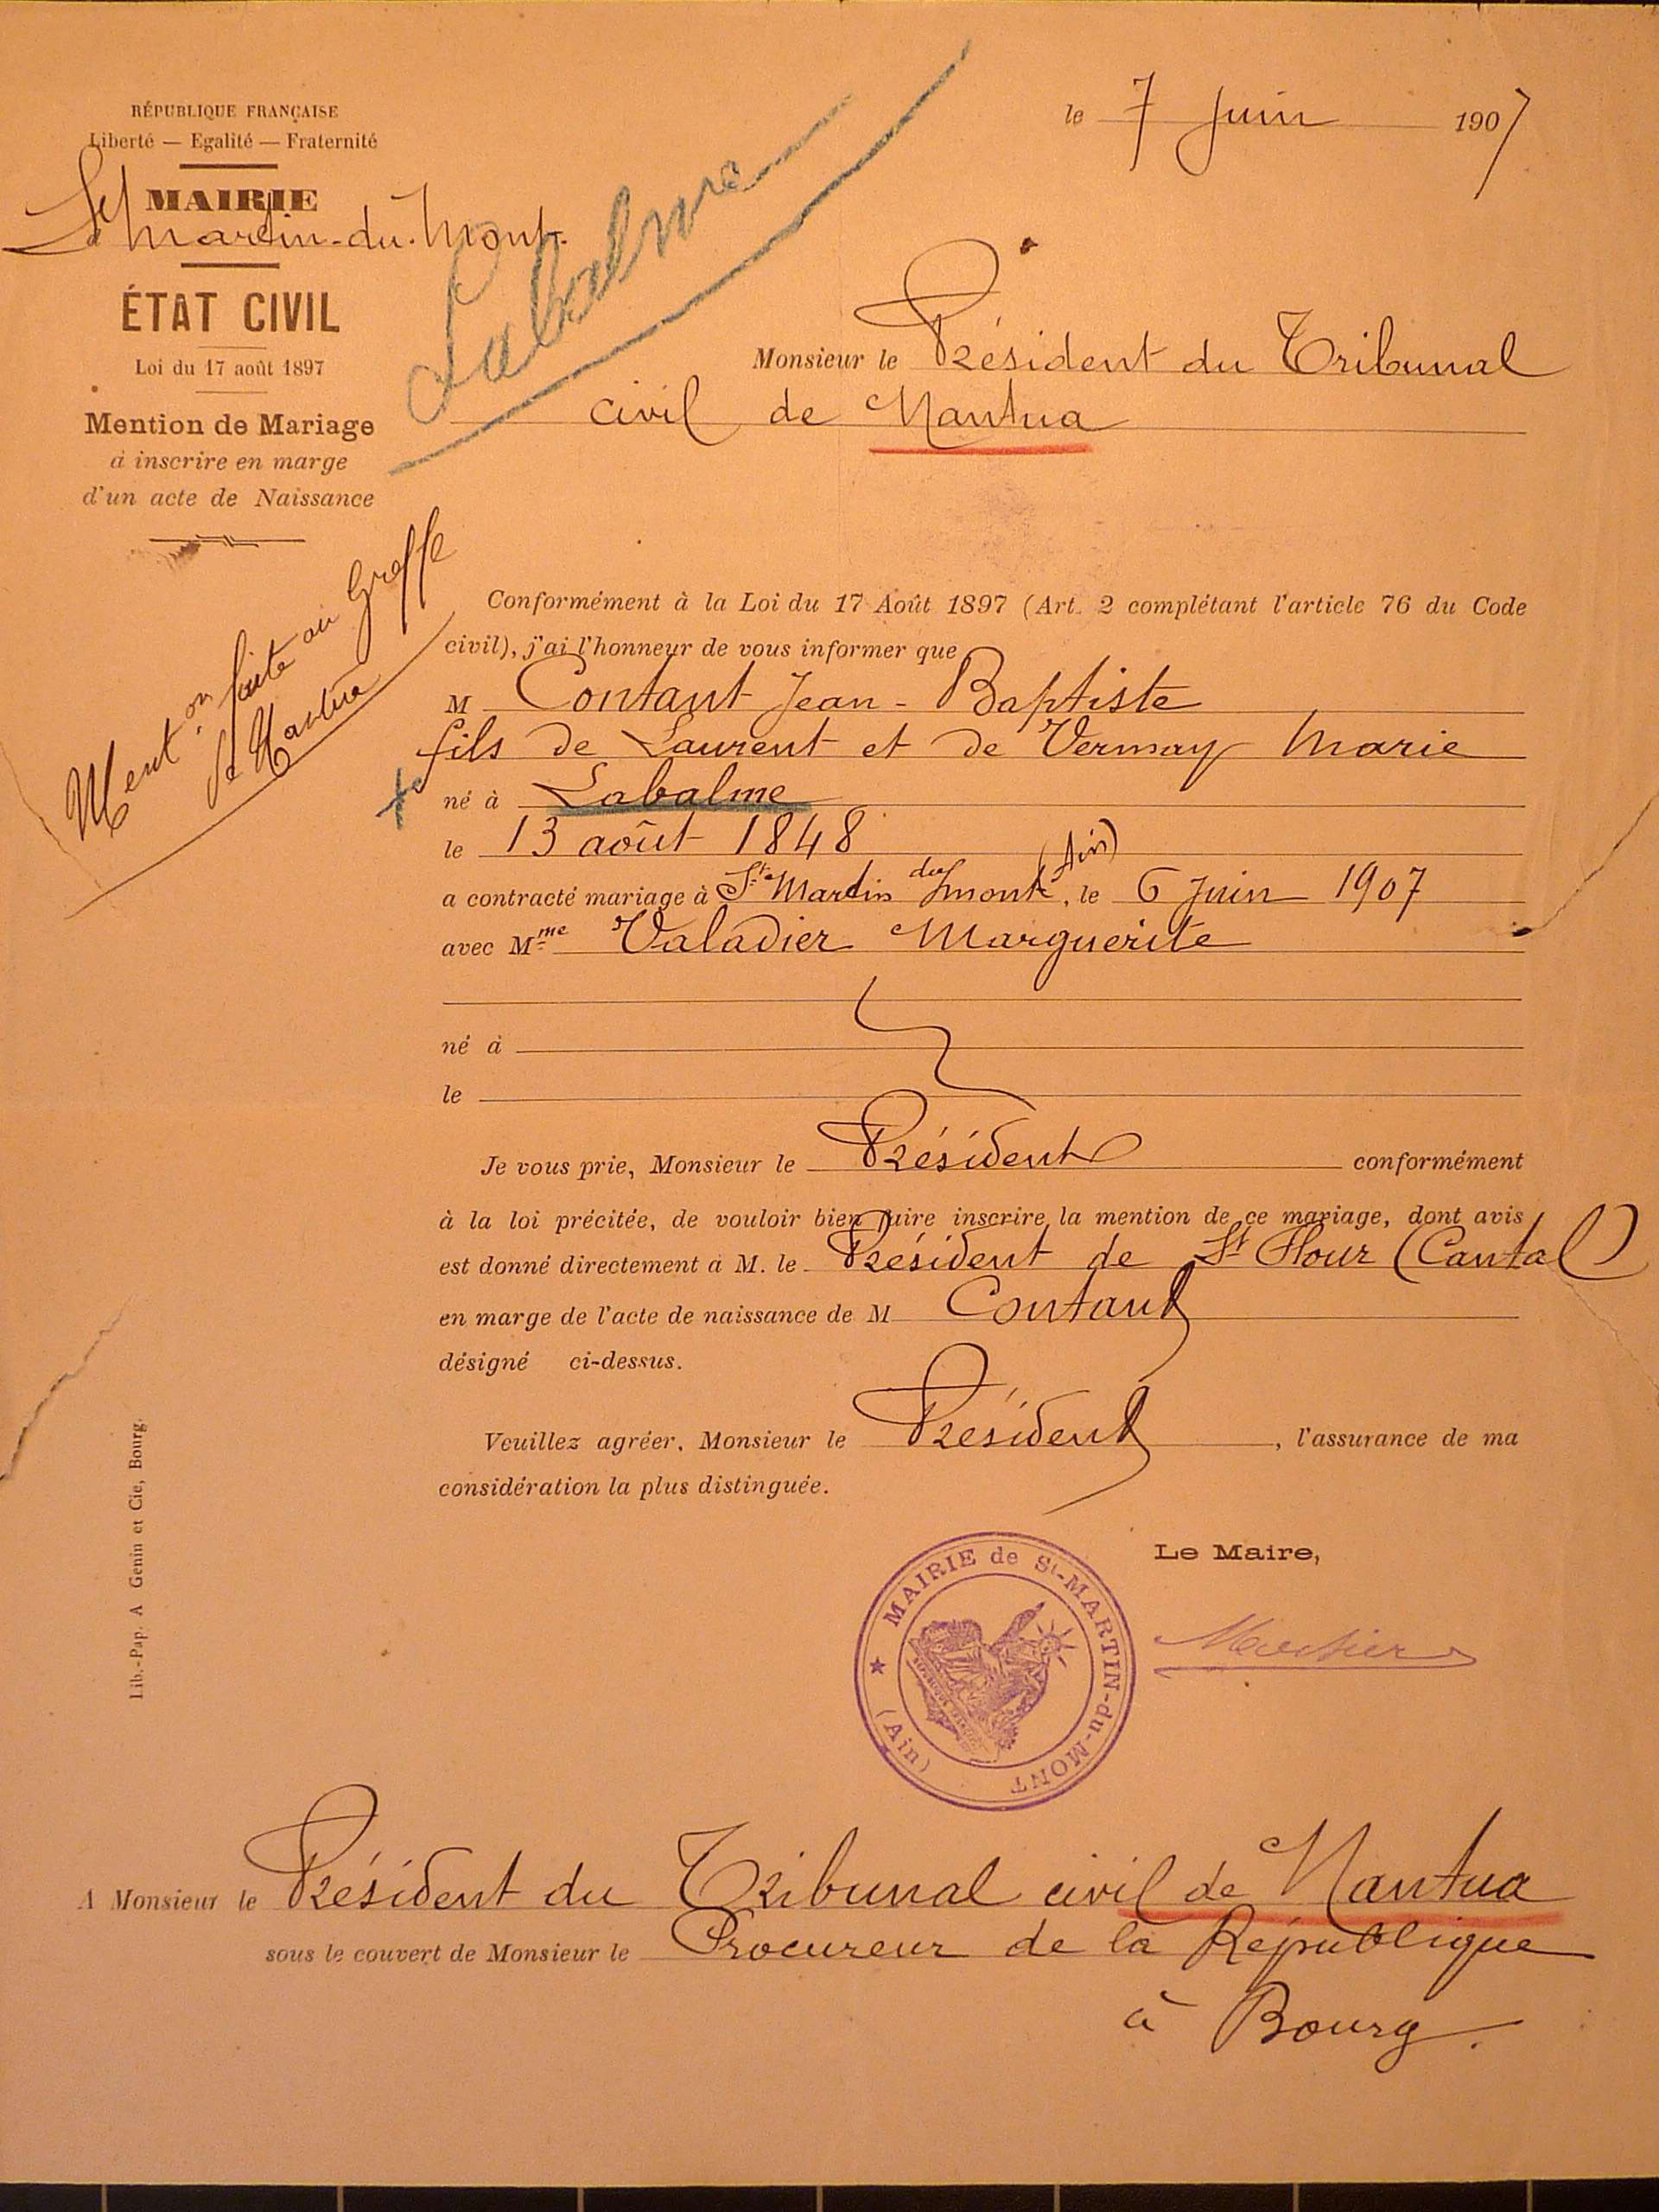 RÉPUBLIQUE FRANÇAISE
Liberté — Egalité — Fraternité
MAIRIE
St Martin-du-Mont.
ÉTAT CIVIL
Loi du 17 août 1897
Mention de Mariage
à inscrire en marge
d'un acte de Naissance
Ment.on faite au Greffe
de Nantua
Labalme
le 7 Juin 1907
Monsieur le Président du Tribunal
civil de Nantua
Conformément à la Loi du 17 Août 1897 (Art. 2 complétant l'article 76 du Code
civil), j'ai l'honneur de vous informer que
M Contant Jean-Baptiste
fils de Laurent et de Vermay Marie
né à Labalme
le 13 août 1848
a contracté mariage à St Martin du mont (Ain), le 6 Juin 1907
avec Mme Valadier Marguerite
né à
le
Je vous prie, Monsieur le Président conformément
à la loi précitée, de vouloir bien faire inscrire la mention de ce mariage, dont avis
est donné directement à M. le Président de St Flour (Cantal)
en marge de l'acte de naissance de M Contant
désigné ci-dessus.
Veuillez agréer, Monsieur le Président, l'assurance de ma
considération la plus distinguée.
Le Maire,
MAIRIE de St-MARTIN-du-MONT
★ (Ain)
A Monsieur le Président du Tribunal civil de Nantua
sous le couvert de Monsieur le Procureur de la République
à Bourg.
Lib.-Pap. A Genin et Cie, Bourg.